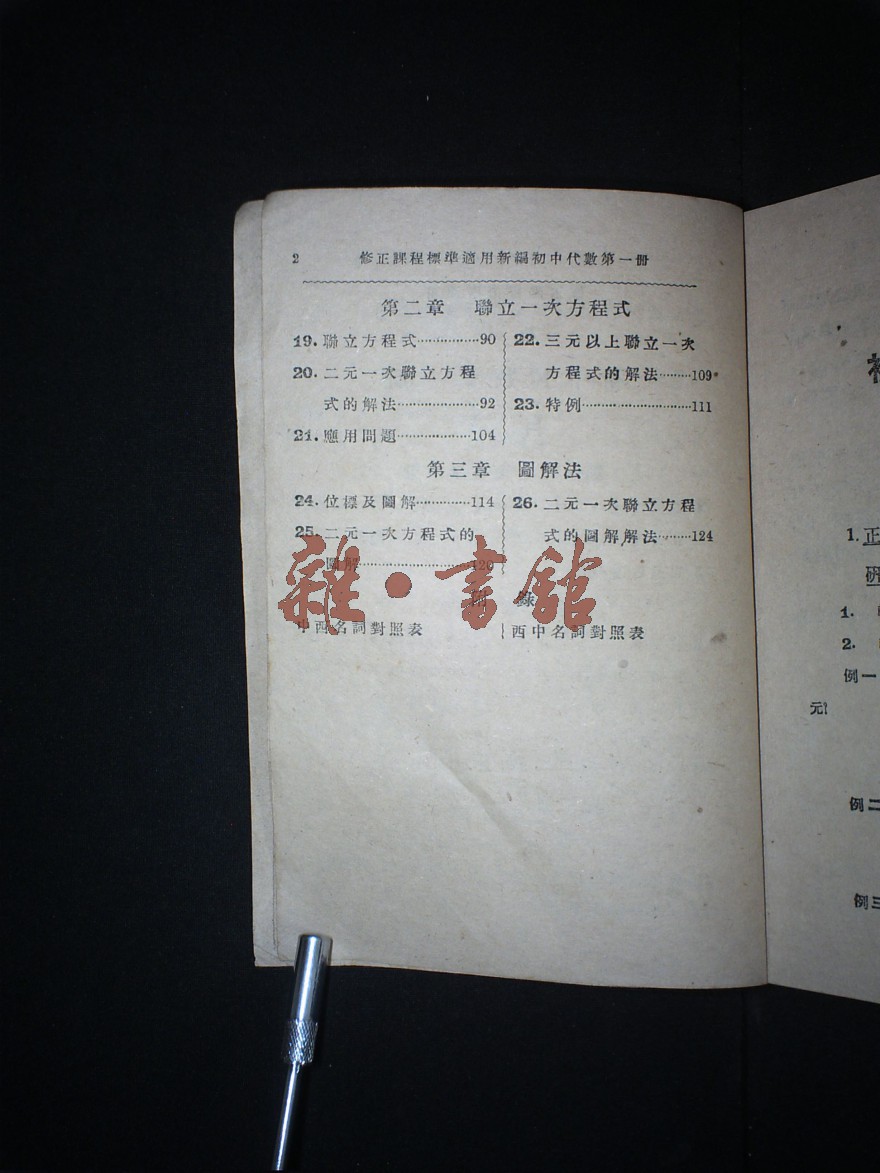 2 修正課程標準適用新編初中代數第一冊
第二章 聯立一次方程式
19. 聯立方程式……………90
20. 二元一次聯立方程
式的解法…………………92
21. 應用問題………………104
22. 三元以上聯立一次
方程式的解法………109
23. 特例………………………111
第三章 圖解法
24. 位標及圖解……………114
25. 二元一次方程式的
圖解………………………120
26. 二元一次聯立方程
式的圖解解法………124
附 錄
中西名詞對照表
西中名詞對照表
雜·書館
1. 正
1.
2.
例一
元
例二
例三